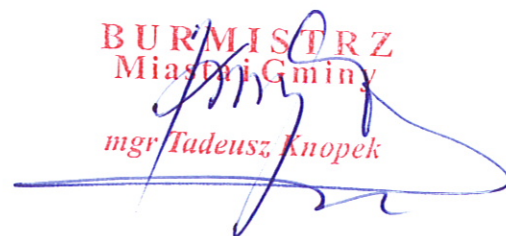 BURMISTRZ
Miasta i Gminy
mgr Tadeusz Knopek